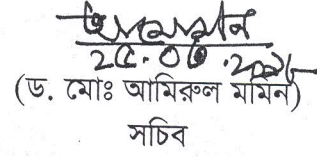 ২৫.০৫.২০১৮
(ড. মোঃ আমিরুল মমিন)
সচিব